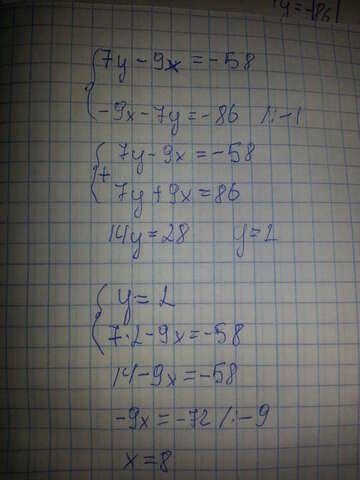 7y-9x=-58
-9x-7y=-86 /:-1
7y-9x=-58
+
7y+9x=86
14y=28 y=2
y=2
7·2-9x=-58
14-9x=-58
-9x=-72 /:-9
x=8